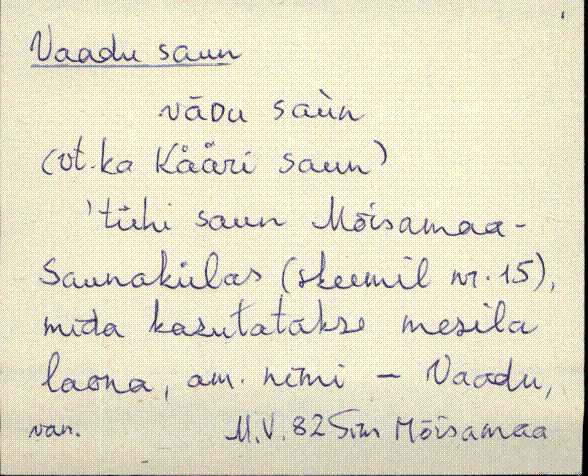 Vaadu saun
vāDu saùn
(vt. ka Kääri saun)
'tühi saun Mõisamaa-
Saunakülas (skeemil nr. 15),
mida kasutatakse mesila
laona, am. nimi – Vaadu,
van. M.V. 82 Sim Mõisamaa